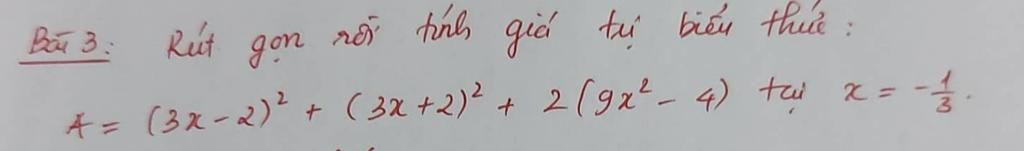 Bài 3: Rút gọn rồi tính giá trị biểu thức:
A = (3x - 2)² + (3x + 2)² + 2(9x² - 4) tại x = -1/3.